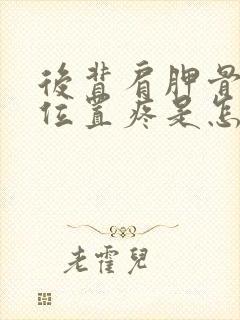 後背肩胛骨
位置疼是怎
老霍兒